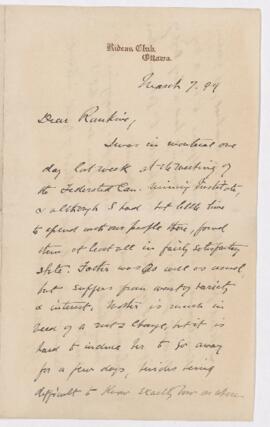 Rideau Club,
Ottawa.
March 7. 99
Dear Rankine,
I was in Montreal one
day last week at the meeting of
the Federated Can. Mining Institute,
& although I had but little time
to spend with our people there, found
them at least all in fairly satisfactory
state. Father was as well as usual
but suffers from want of variety
& interest. Mother is much in
need of a rest & change, but it is
hard to induce her to go away
for a few days, besides being
difficult to know exactly how or where